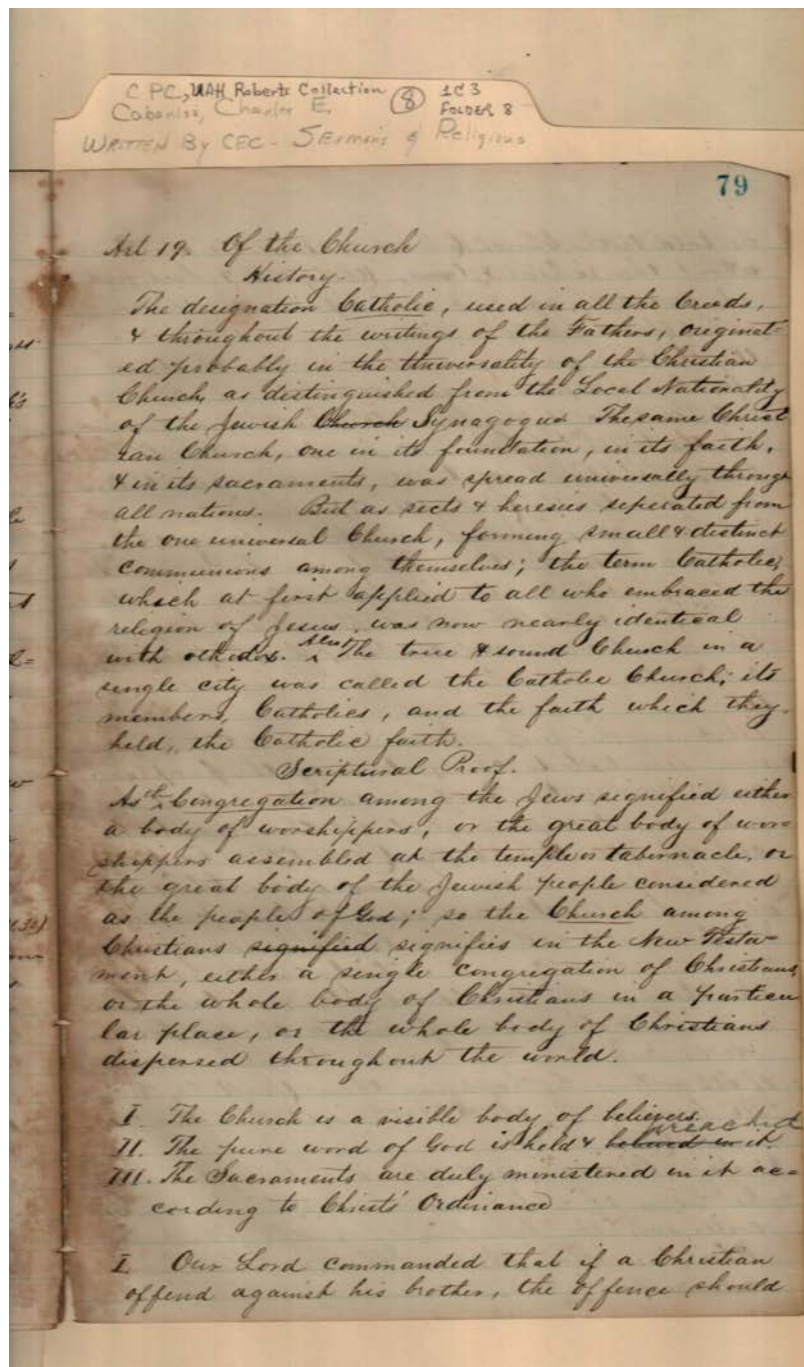 C PC, UAH Roberts Collection 8 1C3
Cabaniss, Charles E. FOLDER 8
WRITTEN By CEC - SErmons & Religious
79
Art 19. Of the Church
History.
The designation Catholic, used in all the Creeds,
& throughout the writings of the Fathers, originat-
ed probably in the Universality of the Christian
Church, as distinguished from the Local Nationality
of the Jewish Church Synagogue. The same Christ
ian Church, one in its foundation, in its faith,
& in its sacraments, was spread universally through
all nations. But as sects & heresies seperated from
the one universal Church, forming small & distinct
communions among themselves; the term Catholic,
which at first applied to all who embraced the
religion of Jesus, was now nearly identical
with othodox. Also, The true & sound Church in a
single city was called the Catholic Church; its
members, Catholics, and the faith which they
held, the Catholic faith.
Scriptural Proof.
As Congregation among the Jews signified either
a body of worshippers, or the great body of wor-
shippers assembled at the temple or tabernacle, or
the great body of the Jewish people considered
as the people of God; so the Church among
Christians signified signifies in the New Testa-
ment, either a single congregation of Christians,
or the whole body of Christians in a particu
lar place, or the whole body of Christians
dispersed throughout the world.
I. The Church is a visible body of believers.
II. The pure word of God is held & believed in preached it.
III. The Sacraments are duly ministered in it ac=
cording to Christs' Ordinance
I Our Lord commanded that if a Christian
offend against his brother, the offence should